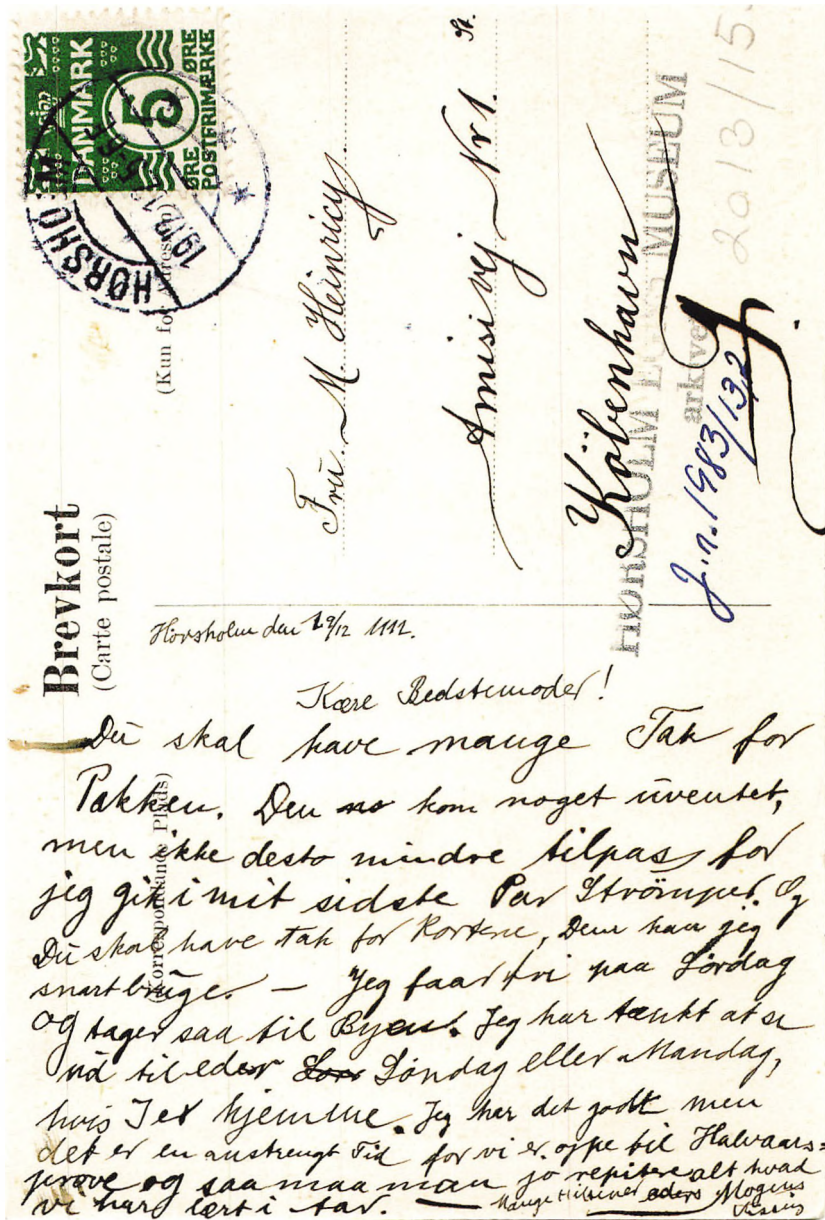 DANMARK
5
ØRE ØRE
POSTFRIMÆRKE
HØRSHOLM
Brevkort
(Carte postale)
Fru. M. Heinricy.
Amisivej Nr 1. St.
København
HØRSHOLM EGNS MUSEUM
arkivet
2013/15
J.n. 1983/13,2
(Korrespondance Plads)
Hörsholm den 19/12 1912.
Kære Bedstemoder!
Du skal have mange Tak for
Pakken. Den kom noget uventet,
men ikke desto mindre tilpas, for
jeg gik i mit sidste Par Strömper. Og
Du skal have Tak for Kortene, Dem kan jeg
snart bruge. — Jeg faar fri paa Lördag
og tager saa til Byen. Jeg har tænkt at se
ud til eder Söndag eller Mandag,
hvis I er hjemme. Jeg har det godt men
det er en anstrengt Tid for vi er oppe til Halvaars=
pröve og saa maa man jo repitere alt hvad
vi har lært i Aar. — Mange Hilsener eders Mogens